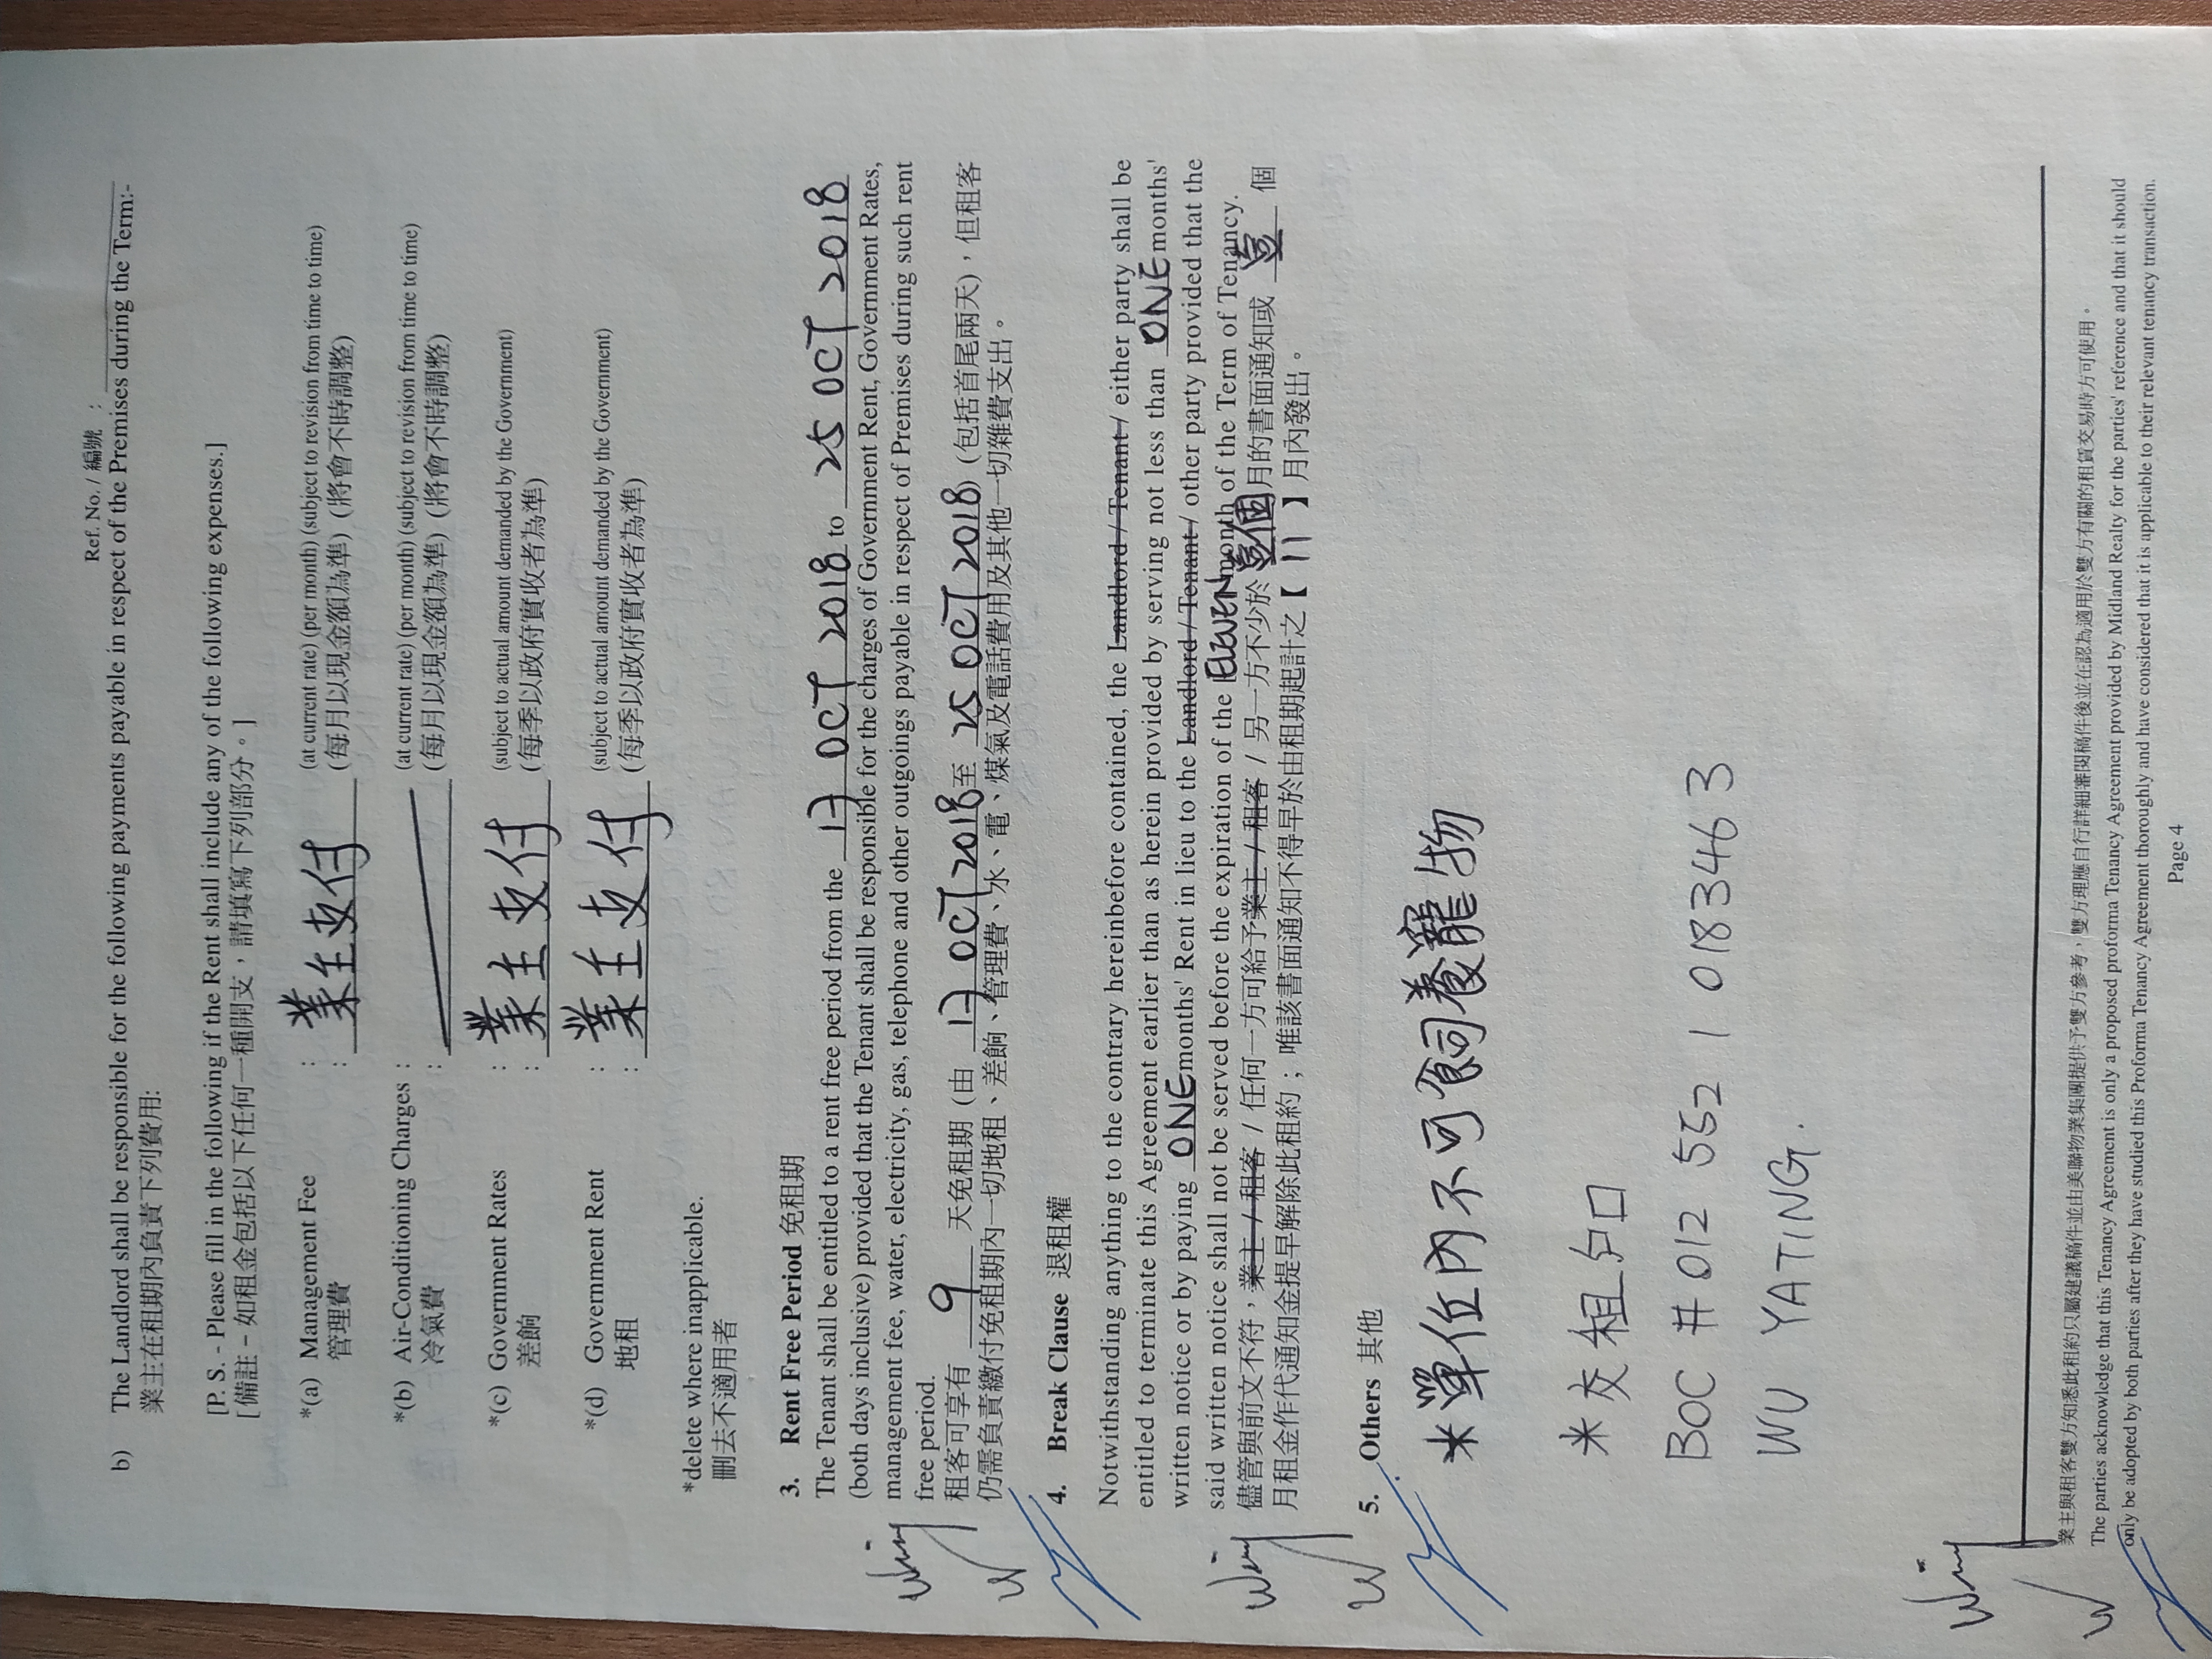 Ref. No. / 編號 :
b) The Landlord shall be responsible for the following payments payable in respect of the Premises during the Term:-
業主在租期內負責下列費用:
[P. S. - Please fill in the following if the Rent shall include any of the following expenses.]
[備註 - 如租金包括以下任何一種開支，請填寫下列部分。]
*(a) Management Fee : 業主支付 (at current rate) (per month) (subject to revision from time to time)
管理費 : (每月以現金額為準) (將會不時調整)
*(b) Air-Conditioning Charges : (at current rate) (per month) (subject to revision from time to time)
冷氣費 : (每月以現金額為準) (將會不時調整)
*(c) Government Rates : 業主支付 (subject to actual amount demanded by the Government)
差餉 : (每季以政府實收者為準)
*(d) Government Rent : 業主支付 (subject to actual amount demanded by the Government)
地租 : (每季以政府實收者為準)
*delete where inapplicable.
刪去不適用者
3. Rent Free Period 免租期
The Tenant shall be entitled to a rent free period from the 17 OCT 2018 to 25 OCT 2018
(both days inclusive) provided that the Tenant shall be responsible for the charges of Government Rent, Government Rates,
management fee, water, electricity, gas, telephone and other outgoings payable in respect of Premises during such rent
free period.
租客可享有 9 天免租期 (由 17 OCT 2018 至 25 OCT 2018) (包括首尾兩天)，但租客
仍需負責繳付免租期內一切地租、差餉、管理費、水、電、煤氣及電話費用及其他一切雜費支出。
4. Break Clause 退租權
Notwithstanding anything to the contrary hereinbefore contained, the Landlord / Tenant / either party shall be
entitled to terminate this Agreement earlier than as herein provided by serving not less than ONE months'
written notice or by paying ONE months' Rent in lieu to the Landlord / Tenant / other party provided that the
said written notice shall not be served before the expiration of the ELEVEN month of the Term of Tenancy.
儘管與前文不符，業主 / 租客 / 任何一方可給予業主 / 租客 / 另一方不少於 壹個 月的書面通知或 壹 個
月租金作代通知金提早解除此租約；唯該書面通知不得早於由租期起計之【 11 】月內發出。
5. Others 其他
*單位內不可飼養寵物
*交租戶口
BOC # 012 552 1 018346 3
WU YATING.
Wing
W
Wing
W
Wing
W
業主與租客雙方知悉此租約只屬建議稿件並由美聯物業集團提供予雙方參考，雙方理應自行詳細審閱稿件後並在認為適用於雙方有關的租賃交易時方可使用。
The parties acknowledge that this Tenancy Agreement is only a proposed proforma Tenancy Agreement provided by Midland Realty for the parties' reference and that it should
only be adopted by both parties after they have studied this Proforma Tenancy Agreement thoroughly and have considered that it is applicable to their relevant tenancy transaction.
Page 4